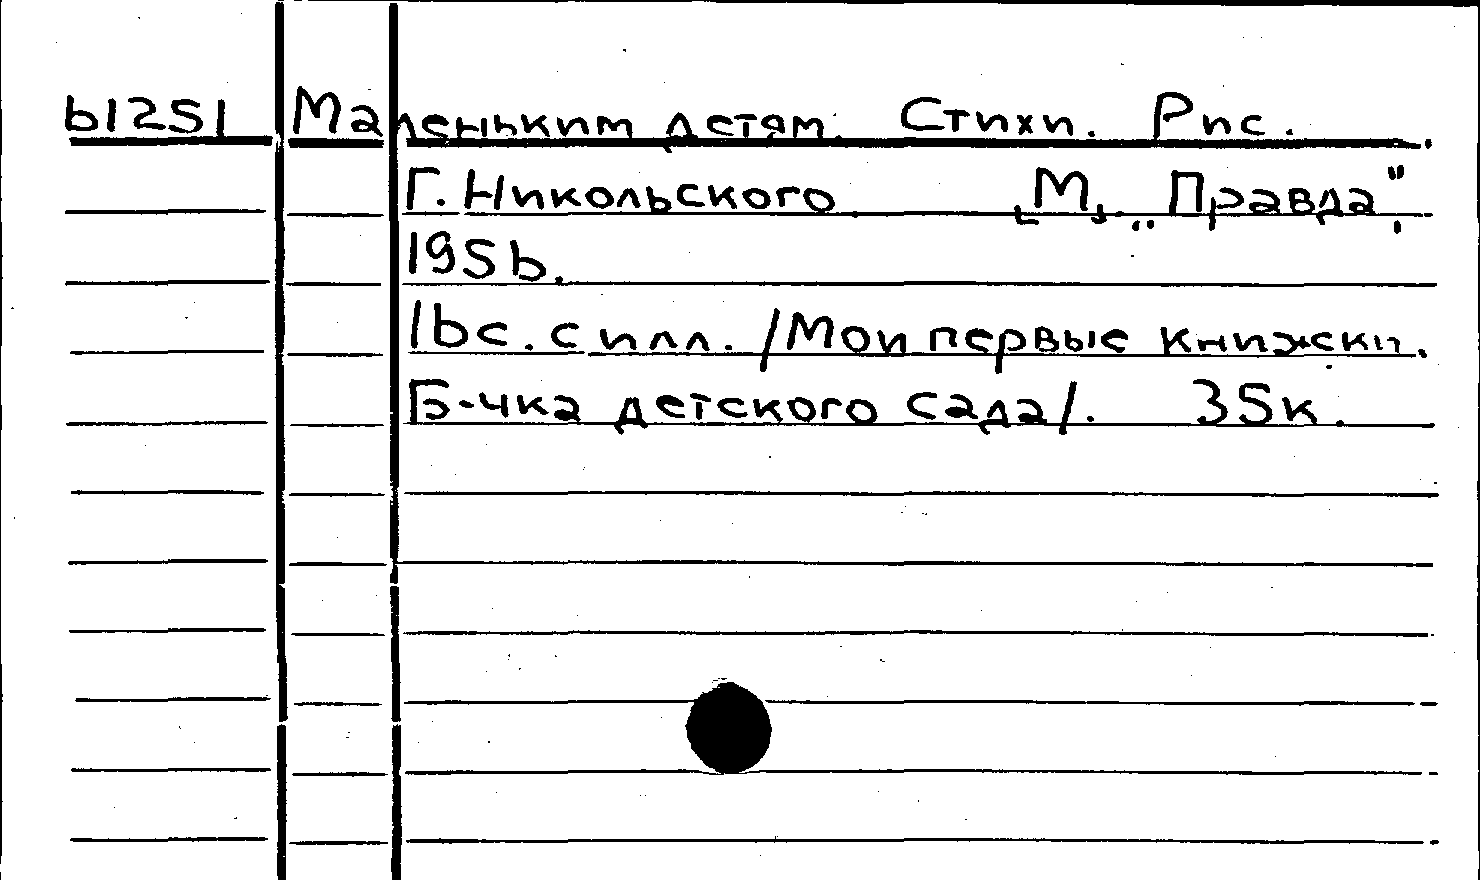 61251 Маленьким детям. Стихи. Рис.
Г. Никольского. [М], „Правда",
1956.
16с. с илл. /Мои первые книжки.
Б-чка детского сада/. 35к.